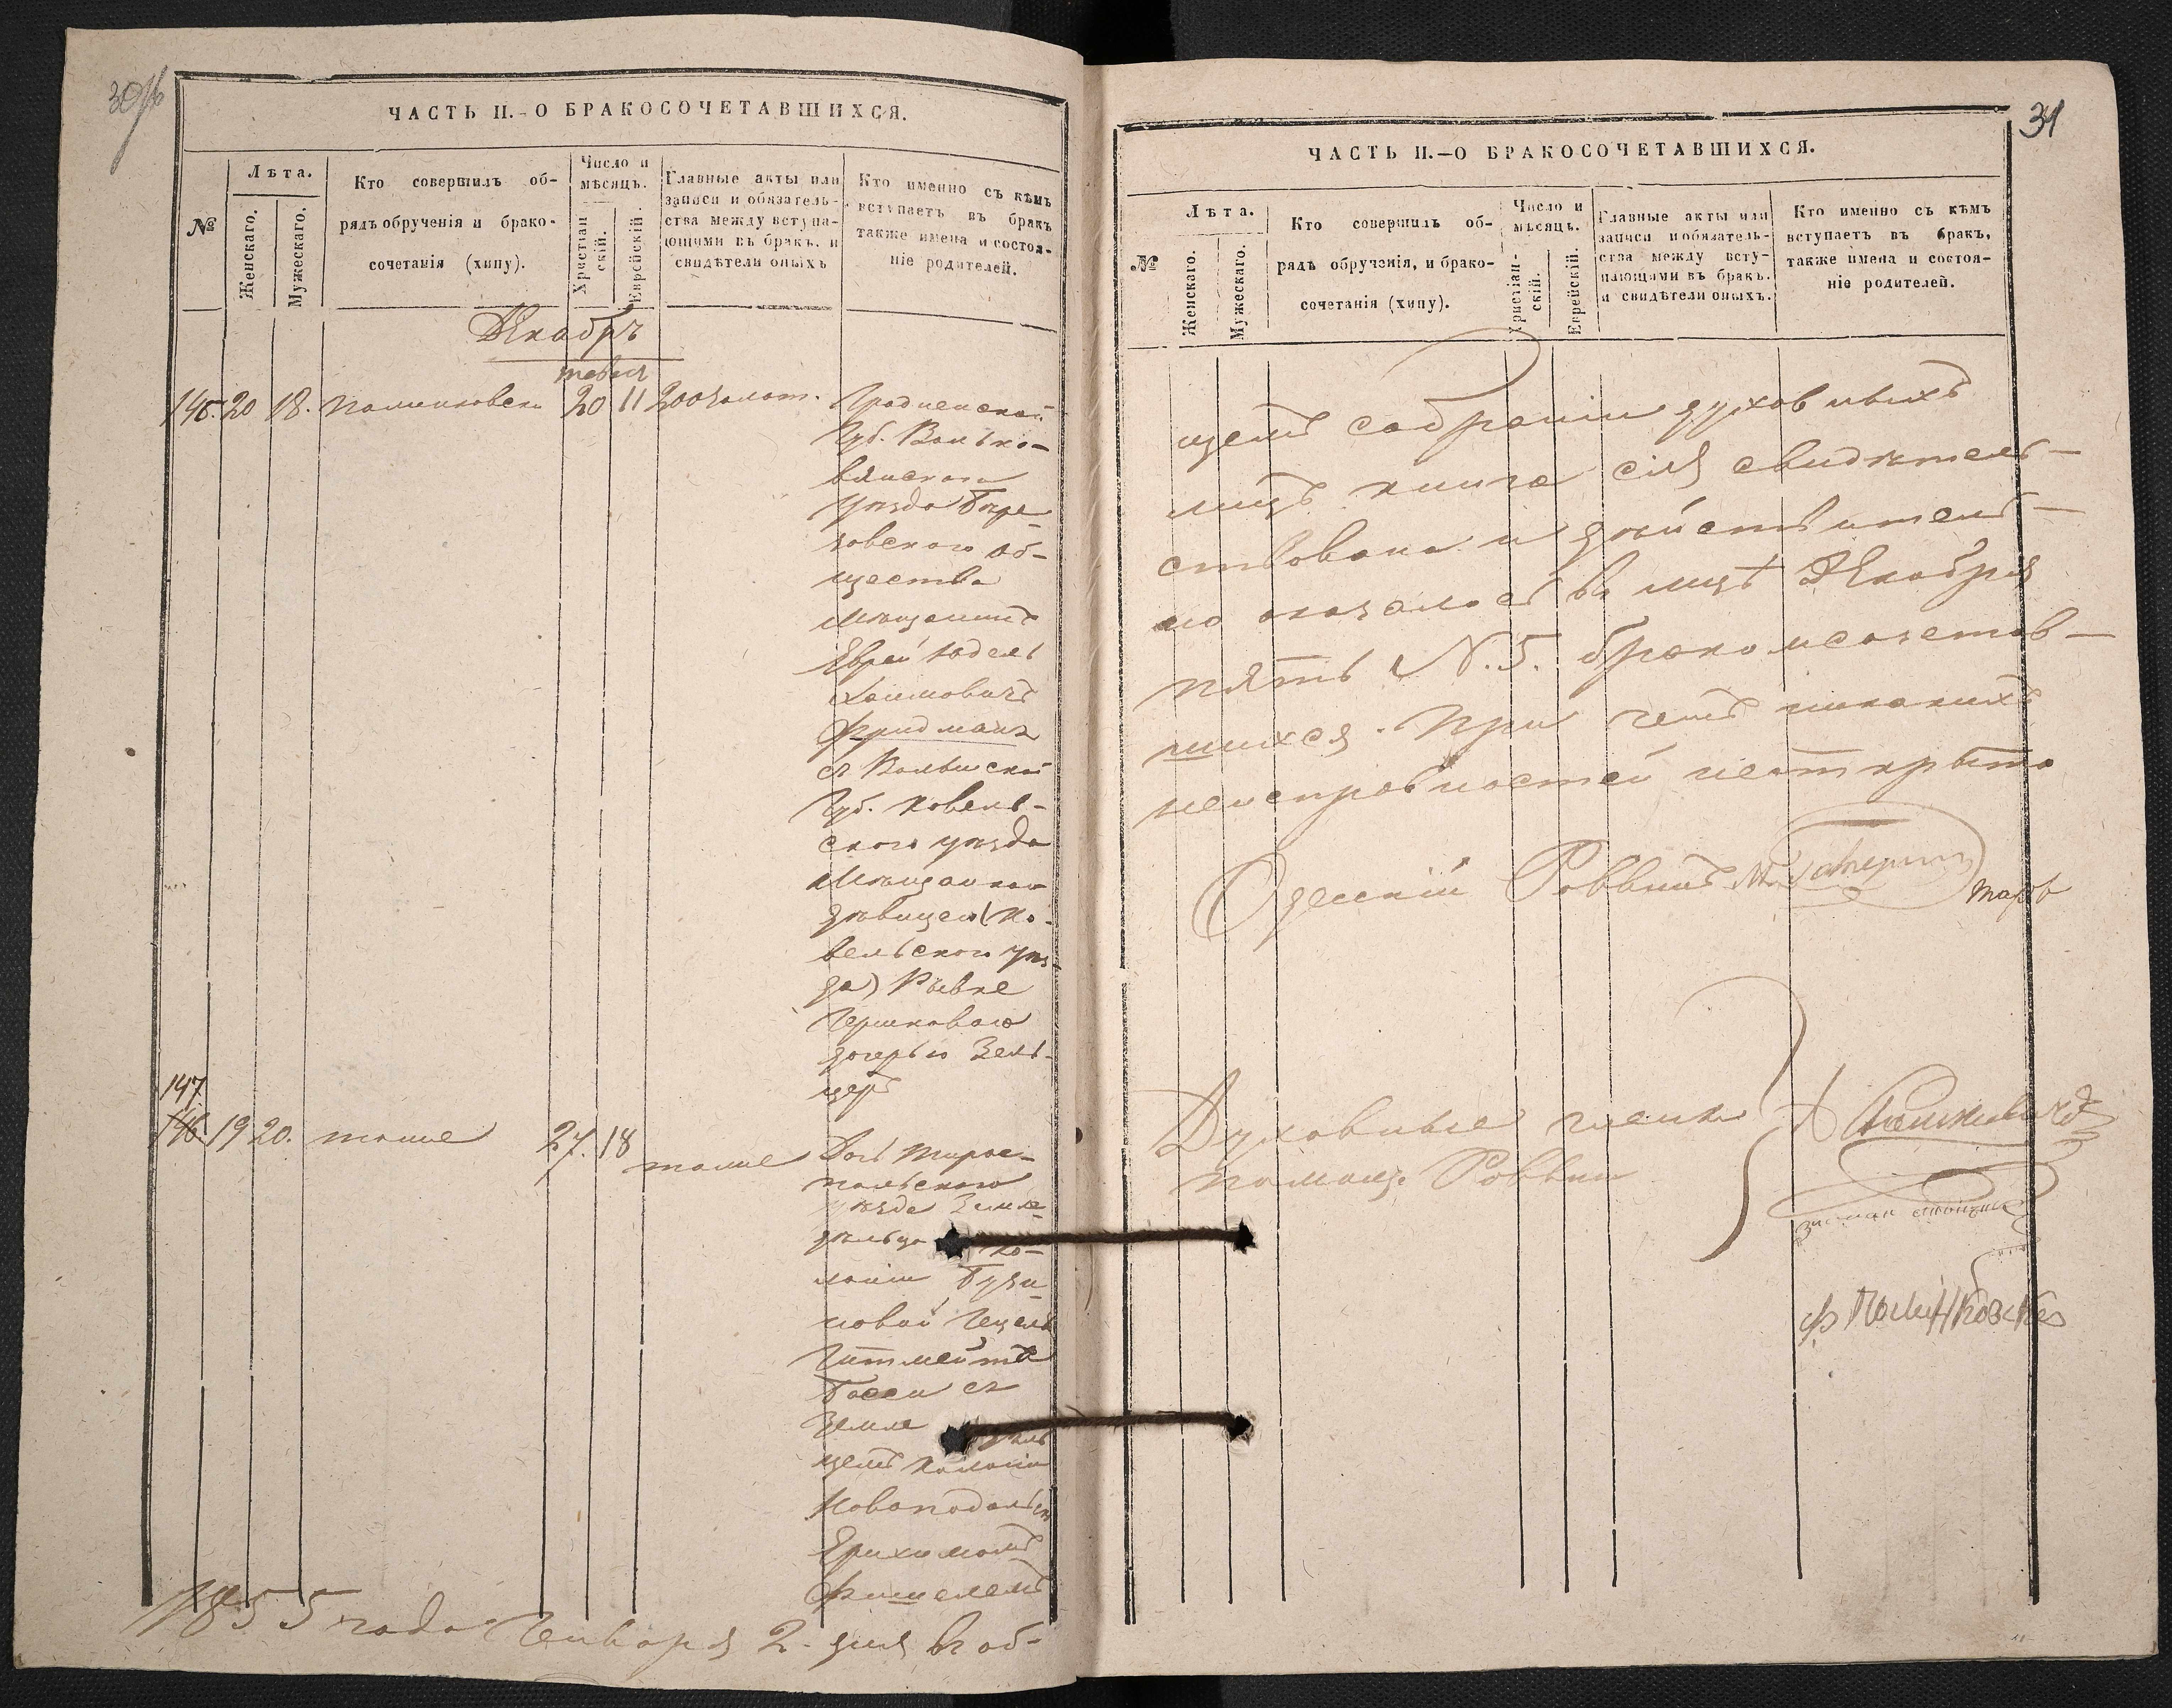 30об
ЧАСТЬ II.-О БРАКОСОЧЕТАВШИХСЯ.
№
Лѣта.
Женскаго.
Мужескаго.
Кто совершилъ об-
рядъ обрученія и брако-
сочетанія (хипу).
Число и
мѣсяцъ.
Христіан
скій.
Еврейскій.
Главные акты или
записи и обязатель-
ства между вступа-
ющими въ бракъ. и
свидѣтели оныхъ
Кто именно съ кѣмъ
вступаетъ въ бракъ
также имена и состоя-
ніе родителей.
Декабрь
146. 20 18. 20 11 200 золот. Гродненской
Губ. Волько-
выскаго
уѣзда
зовскаго об-
щества
мѣщанинъ
Еврей Юдель
Хаимовичъ
Фридманъ
съ Волынской
Губ. Ковель-
скаго уѣзда
Мѣщанкою
дѣвицею (Ко-
вельскаго уѣз-
да) Ривке
Гершковою
дочерью Зель-
церъ
147
146. 19 20. тоже 27. 18 тоже Дочь Тирас-
польскаго
уѣзда Земле-
дѣльца Ко-
лоніи
новой
Басси съ
Земле дѣль
цемъ Колоніи
Новоподольск
Фишелемъ
1855 года Генваря 2. дня въ об-
31
ЧАСТЬ II.—О БРАКОСОЧЕТАВШИХСЯ.
№
Лѣта.
Женскаго.
Мужескаго.
Кто совершилъ об-
рядъ обрученія, и брако-
сочетанія (хипу).
Число и
мѣсяцъ.
Христіан-
скій.
Еврейскій.
Главные акты или
записи и обязатель-
ства между всту-
пающими въ бракъ.
и свидѣтели оныхъ.
Кто именно съ кѣмъ
вступаетъ въ бракъ,
также имена и состоя-
ніе родителей.
щемъ собраніи духовныхъ
лицъ книга сія свидѣтель-
ствована и дѣйствитель-
но оказалось въ мцѣ Декабря
пять N. 5. бракомсочетав-
шихся. При чемъ никакихъ
неисправностей неоткрыто
Одесскій Раввинъ
Духовные члены
помощ. Раввин